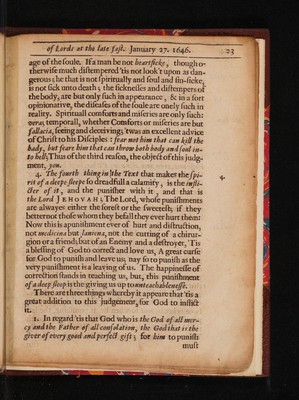 of Lords at the late fast. January 27. 1646. 23
age of the soule. If a man be not heartsicke, though o-
therwise much distempered 'tis not look't upon as dan-
gerous; he that is not spiritually and soul and sin-sicke,
is not sick unto death; the sicknesses and distempers of
the body, are but only such in appearance, & in a sort
opinionative, the diseases of the soule are onely such in
reality. Spirituall comforts and miseries are only such:
vera, temporall, whether Comforts or miseries are but
fallacia, seeing and deceiving; 'twas an excellent advice
of Christ to his Disciples: fear not him that can kill the
body, but feare him that can throw both body and soul in-
to hell; Thus of the third reason, the object of this judg-
ment, you.
4. The fourth thing in the Text that makes the spi-
rit of a deepe sleepe so dreadfull a calamity, is the inflic- 4.
cter of it, and the punisher with it, and that is
the Lord JEHOVAH; The Lord, whose punishments
are alwayes either the sorest or the sweetest; if they
better not those whom they befall they ever hurt them:
Now this is a punishment ever of hurt and distruction,
not medicina but laniena, not the cutting of a chirur-
gion or a friend, but of an Enemy and a destroyer, 'Tis
a blessing of God to correct and love us, A great curse
for God to punish and leave us; nay so to punish as the
very punishment is a leaving of us. The happinesse of
correction stands in teaching us, but, this punishment
of a deep sleep is the giving us up to unteachablenesse.
There are three things whereby it appeare that 'tis a
great addition to this judgement, for God to inflict
it.
1. In regard 'tis that God who is the God of all mer-
cy and the Father of all consolation, the God that is the
giver of every good and perfect gift; for him to punish
must